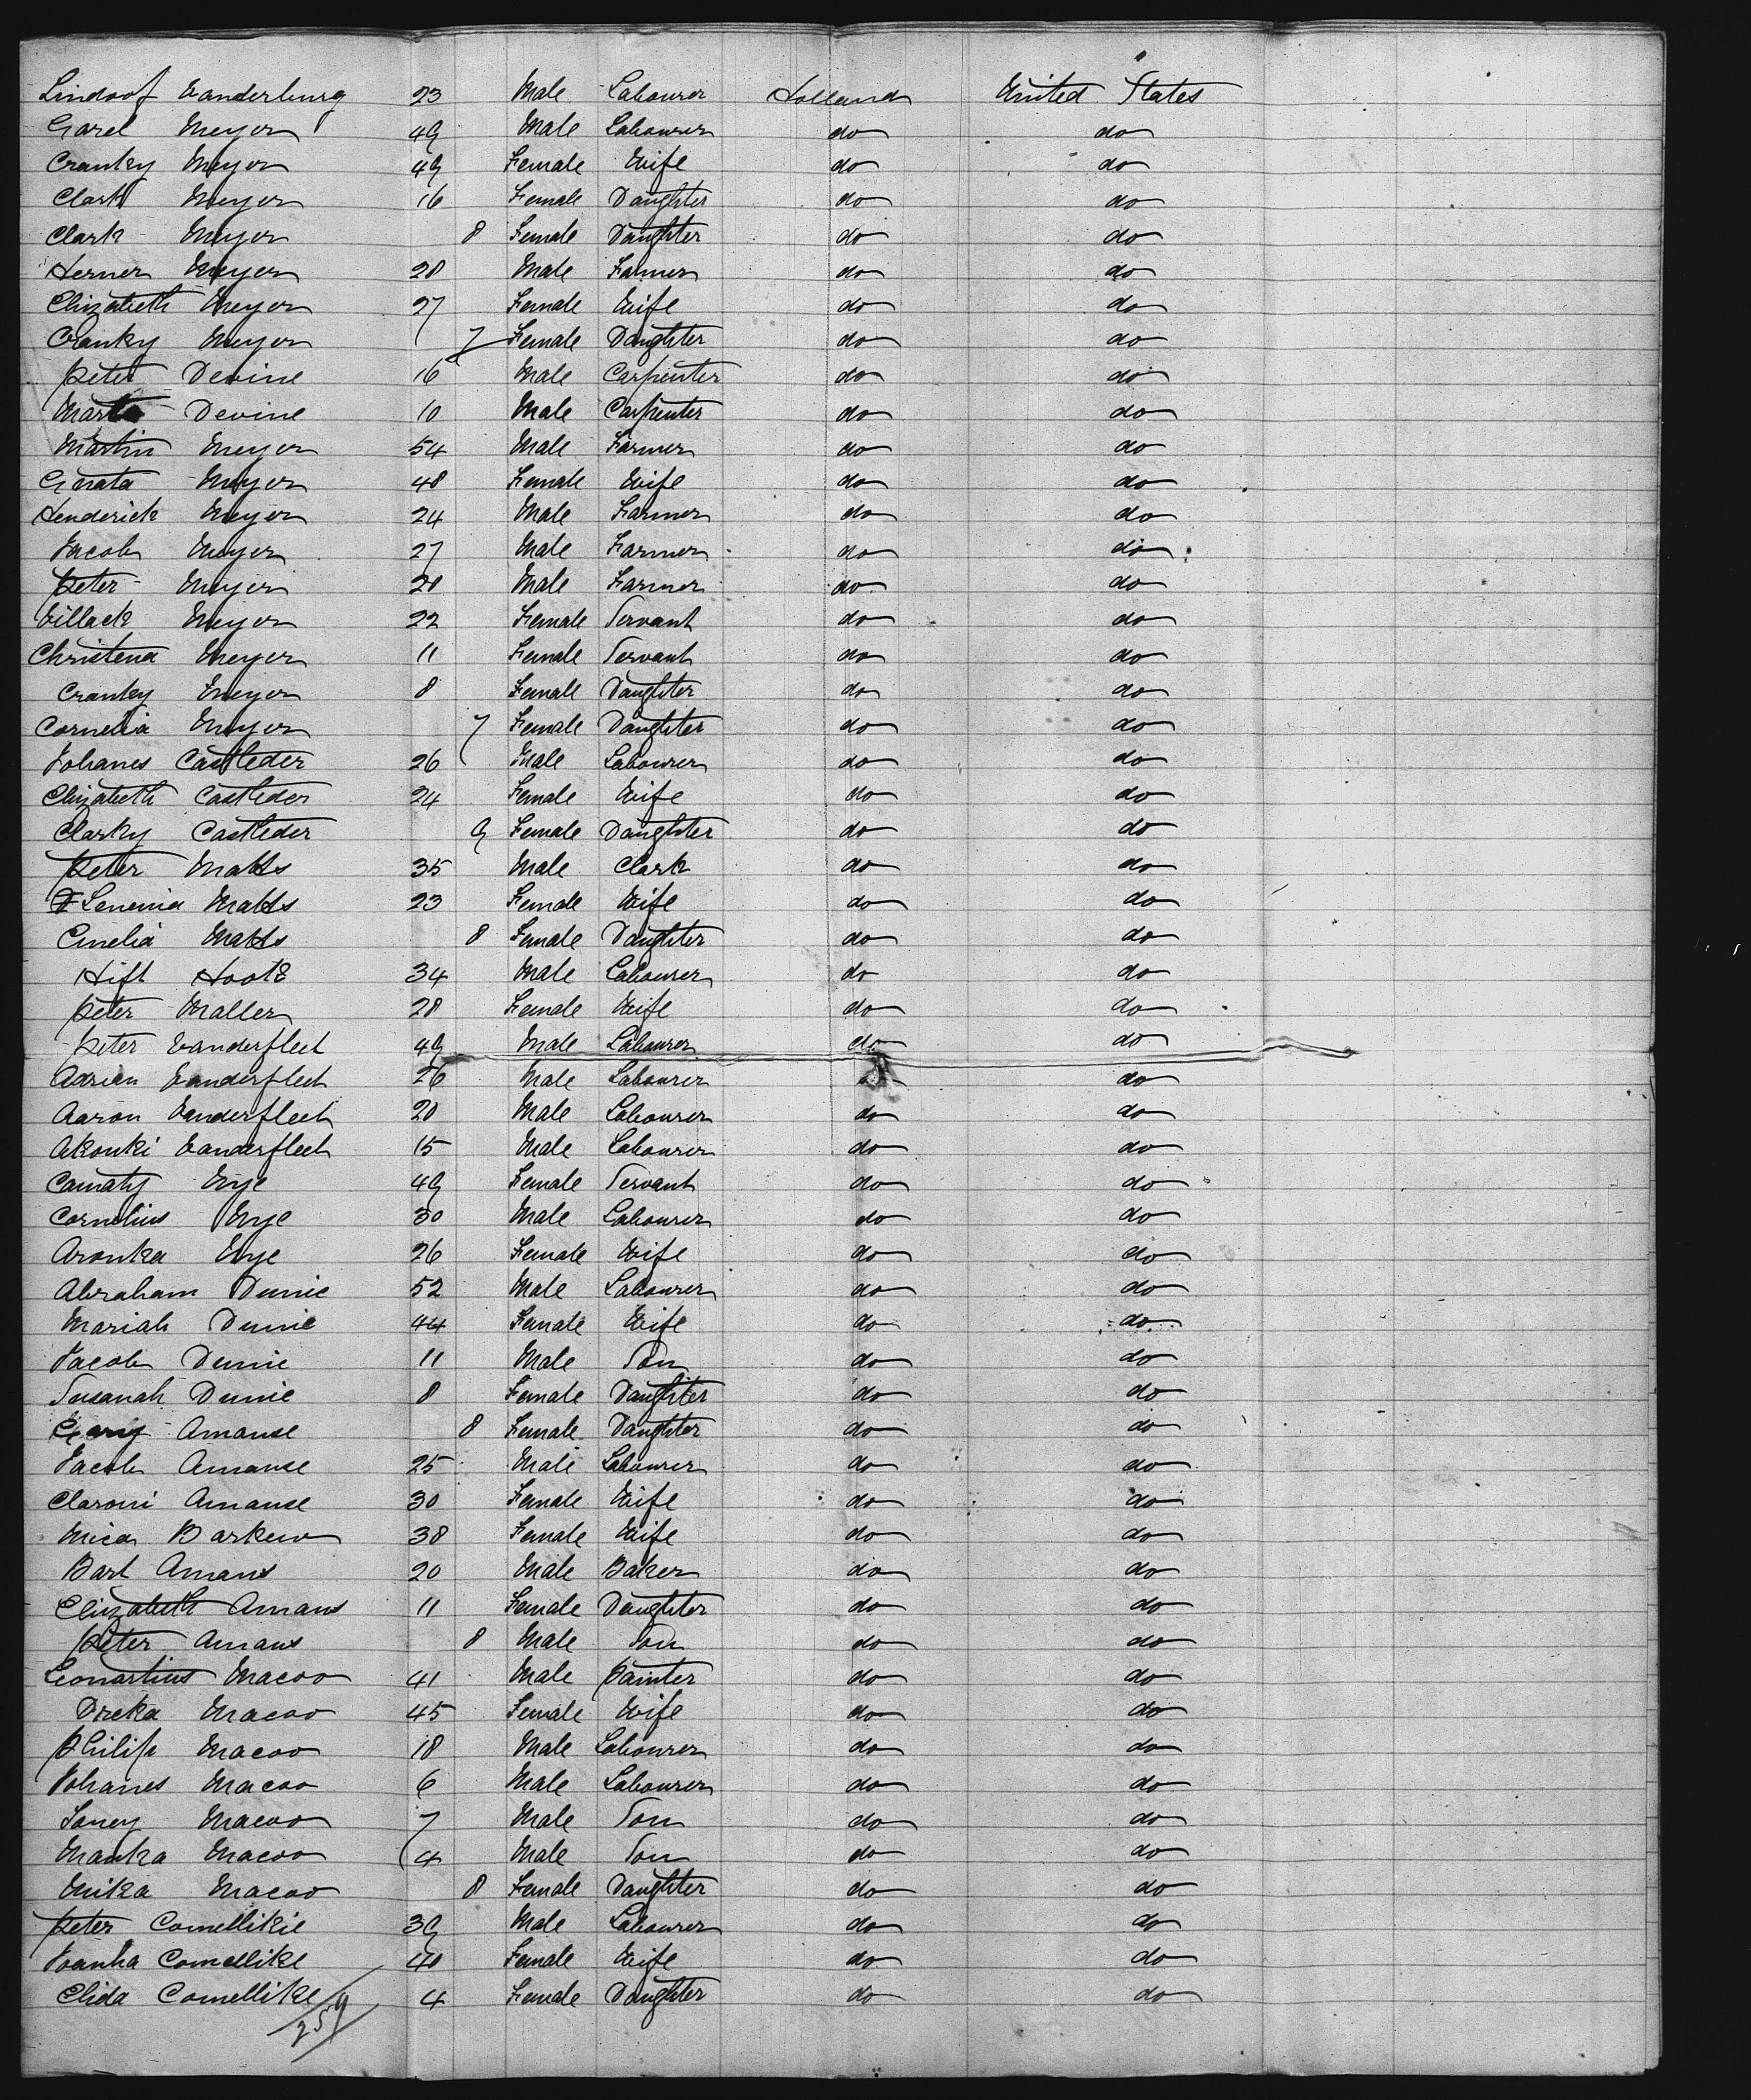 Lindoof Vanderburg 23 Male Labourer Holland United States
Garel Meyer 49 Male Labourer do do
Cranky Meyer 49 Female Wife do do
Clark Meyer 16 Female Daughter do do
Clark Meyer 8 Female Daughter do do
Herner Meyer 28 Male Farmer do do
Elizabeth Meyer 27 Female Wife do do
Cranky Meyer 7 Female Daughter do do
Peter Devine 16 Male Carpenter do do
Devine 10 Male Carpenter do do
Martin Meyer 54 Male Farmer do do
Meyer 48 Female Wife do do
Henderick Meyer 24 Male Farmer do do
Jacob Meyer 27 Male Farmer do do
Peter Meyer 20 Male Farmer do do
Villack Meyer 22 Female Servant do do
Christena Meyer 11 Female Servant do do
Cranky Meyer 8 Female Daughter do do
Cornelia Meyer 7 Female Daughter do do
Johanes Castleder 26 Male Labourer do do
Elizabeth Castleder 24 Female Wife do do
Clarky Castleder 9 Female Daughter do do
Peter Matts 35 Male Clark do do
Lenenia Matts 23 Female Wife do do
Emelia Matts 8 Female Daughter do do
Hift 34 Male Labourer do do
Peter Maller 28 Female Wife do do
Peter Vanderfleet 49 Male Labourer do do
Adrien Vanderfleet 26 Male Labourer do do
Aaron Vanderfleet 20 Male Labourer do do
Akonki Vanderfleet 15 Male Labourer do do
Camaty Wye 49 Female Servant do do
Cornelius Wye 30 Male Labourer do do
Aronka Wye 26 Female Wife do do
Abraham Dunie 52 Male Labourer do do
Mariah Dunie 44 Female Wife do do
Jacob Dunie 11 Male Son do do
Susanah Dunie 8 Female Daughter do do
Amanse 8 Female Daughter do do
Jacob Amanse 25 Male Labourer do do
Claroni Amanse 30 Female Wife do do
Mica Barkew 38 Female Wife do do
Bart Amans 20 Male Baker do do
Elizabeth Amans 11 Female Daughter do do
Peter Amans 8 Male Son do do
Leonartius Macoo 41 Male Painter do do
Dreka Macoo 45 Female Wife do do
Philip Macoo 18 Male Labourer do do
Johanes Macoo 6 Male Labourer do do
Janey Macoo 7 Male Son do do
Manka Macoo 4 Male Son do do
Mika Macoo 8 Female Daughter do do
Peter Comellikie 39 Male Labourer do do
Joanha Comellike 40 Female Wife do do
Elida Comellike 4 Female Daughter do do
259